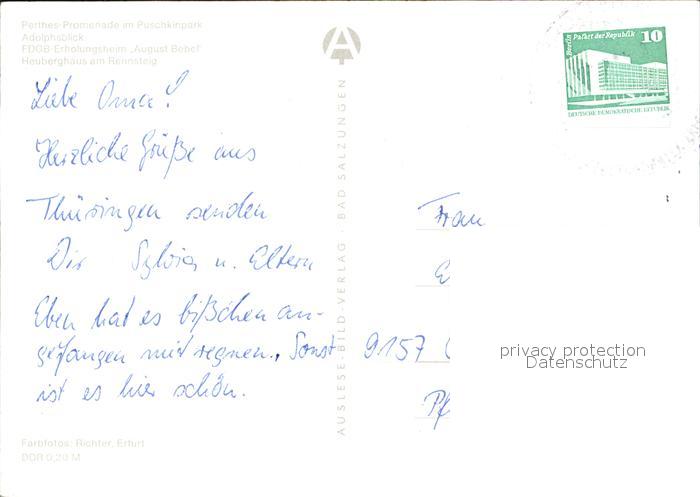 Perthes-Promenade im Puschkinpark
Adolphsblick
FDGB-Erholungsheim „August Bebel"
Heuberghaus am Rennsteig
Liebe Oma!
Herzliche Grüße aus
Thüringen senden
Dir Sylvia u. Eltern
Eben hat es bißchen an-
gefangen mit regnen., Sonst
ist es hier schön.
Farbfotos: Richter, Erfurt
DDR 0,20 M
AUSLESE-BILD-VERLAG · BAD SALZUNGEN
Berlin Palast der Republik 10
DEUTSCHE DEMOKRATISCHE REPUBLIK
Frau
9157
Pf
privacy protection
Datenschutz